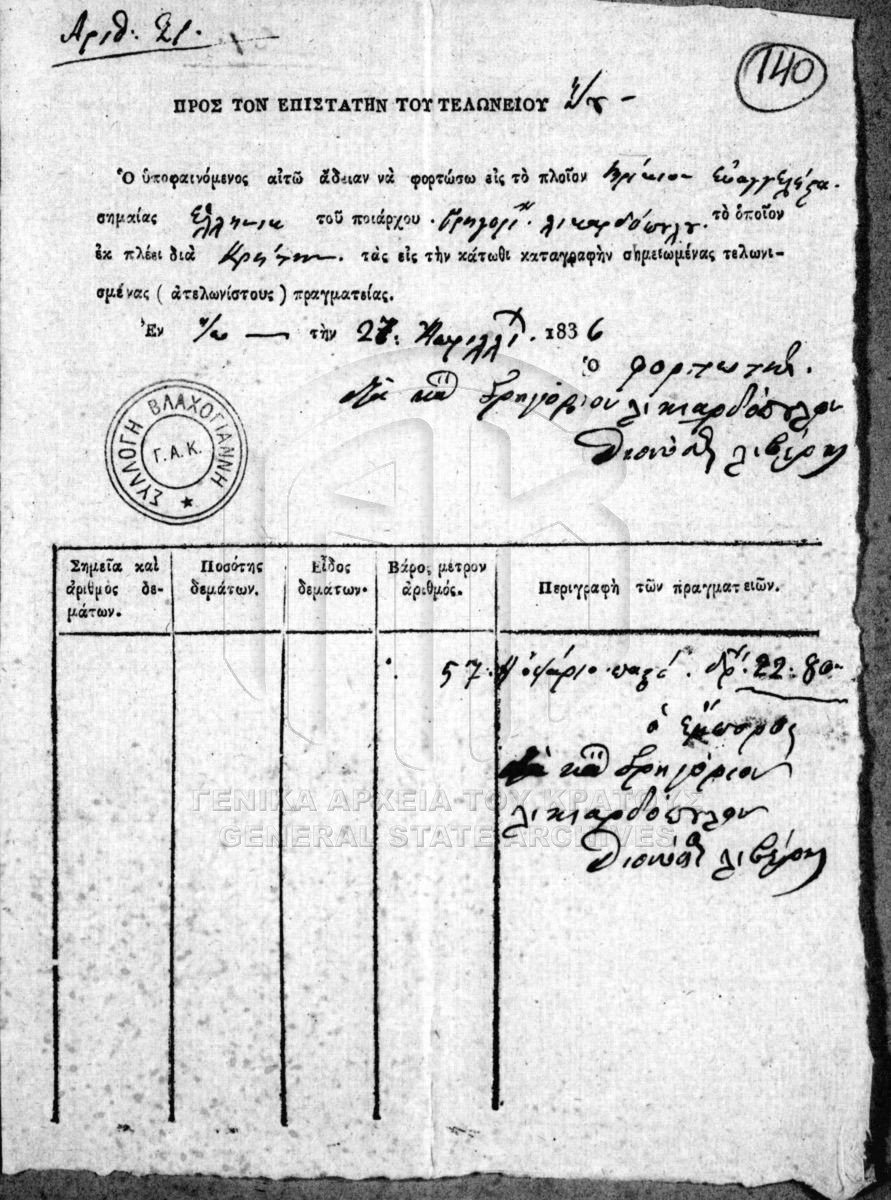 Ἀριθ: 21.
140
ΠΡΟΣ ΤΟΝ ΕΠΙΣΤΑΤΗΝ ΤΟΥ ΤΕΛΩΝΕΙΟΥ
Ὁ ὑποφαινόμενος αἰτῶ ἄδειαν νὰ φορτώσω εἰς τὸ πλοῖον
σημαίας Ἑλληνικ τοῦ ποιάρχου Γρηγορί λικαρδόπυλυ. τὸ ὁποῖον
ἐκ πλέει διὰ Κρήτην. τὰς εἰς τὴν κάτωθι καταγραφὴν σημειωμένας τελωνι-
σμένας ( ἀτελωνίστους ) πραγματείας.
Ἐν τὴν 27: Ἀπριλλί. 1836
Ὁ φορτωτής.
Γρηγόριον λικιαρδόπυλον
Διονύσι λιβέρης
ΣΥΛΛΟΓΗ ΒΛΑΧΟΓΙΑΝΝΗ
Γ.Α.Κ.
Σημεῖα καὶ ἀριθμὸς δεμάτων.
Ποσότης δεμάτων.
Εἶδος δεμάτων.
Βάρος μέτρον ἀριθμός.
Περιγραφὴ τῶν πραγματειῶν.
57. 22:80
ὁ ἔμπορος
Γρηγόριον
λικιαρδόπυλον
Διονύσι λιβέρης
ΓΕΝΙΚΑ ΑΡΧΕΙΑ ΤΟΥ ΚΡΑΤΟΥΣ
GENERAL STATE ARCHIVES